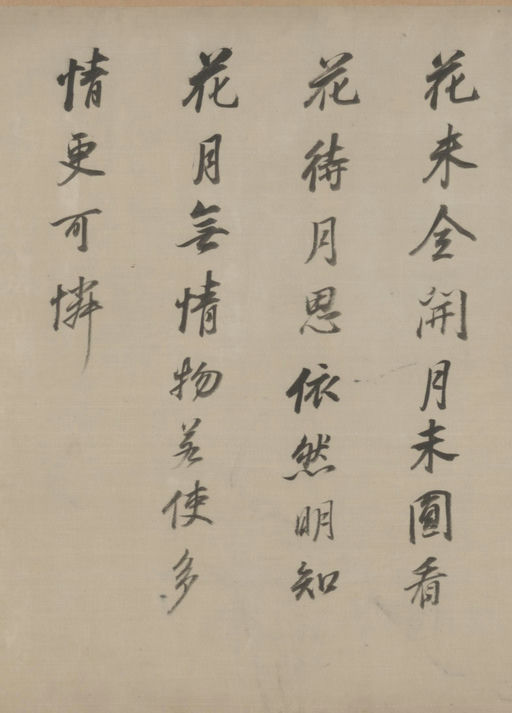 花未全開月未圓看
花待月思依然明知
花月無情物若使多
情更可憐